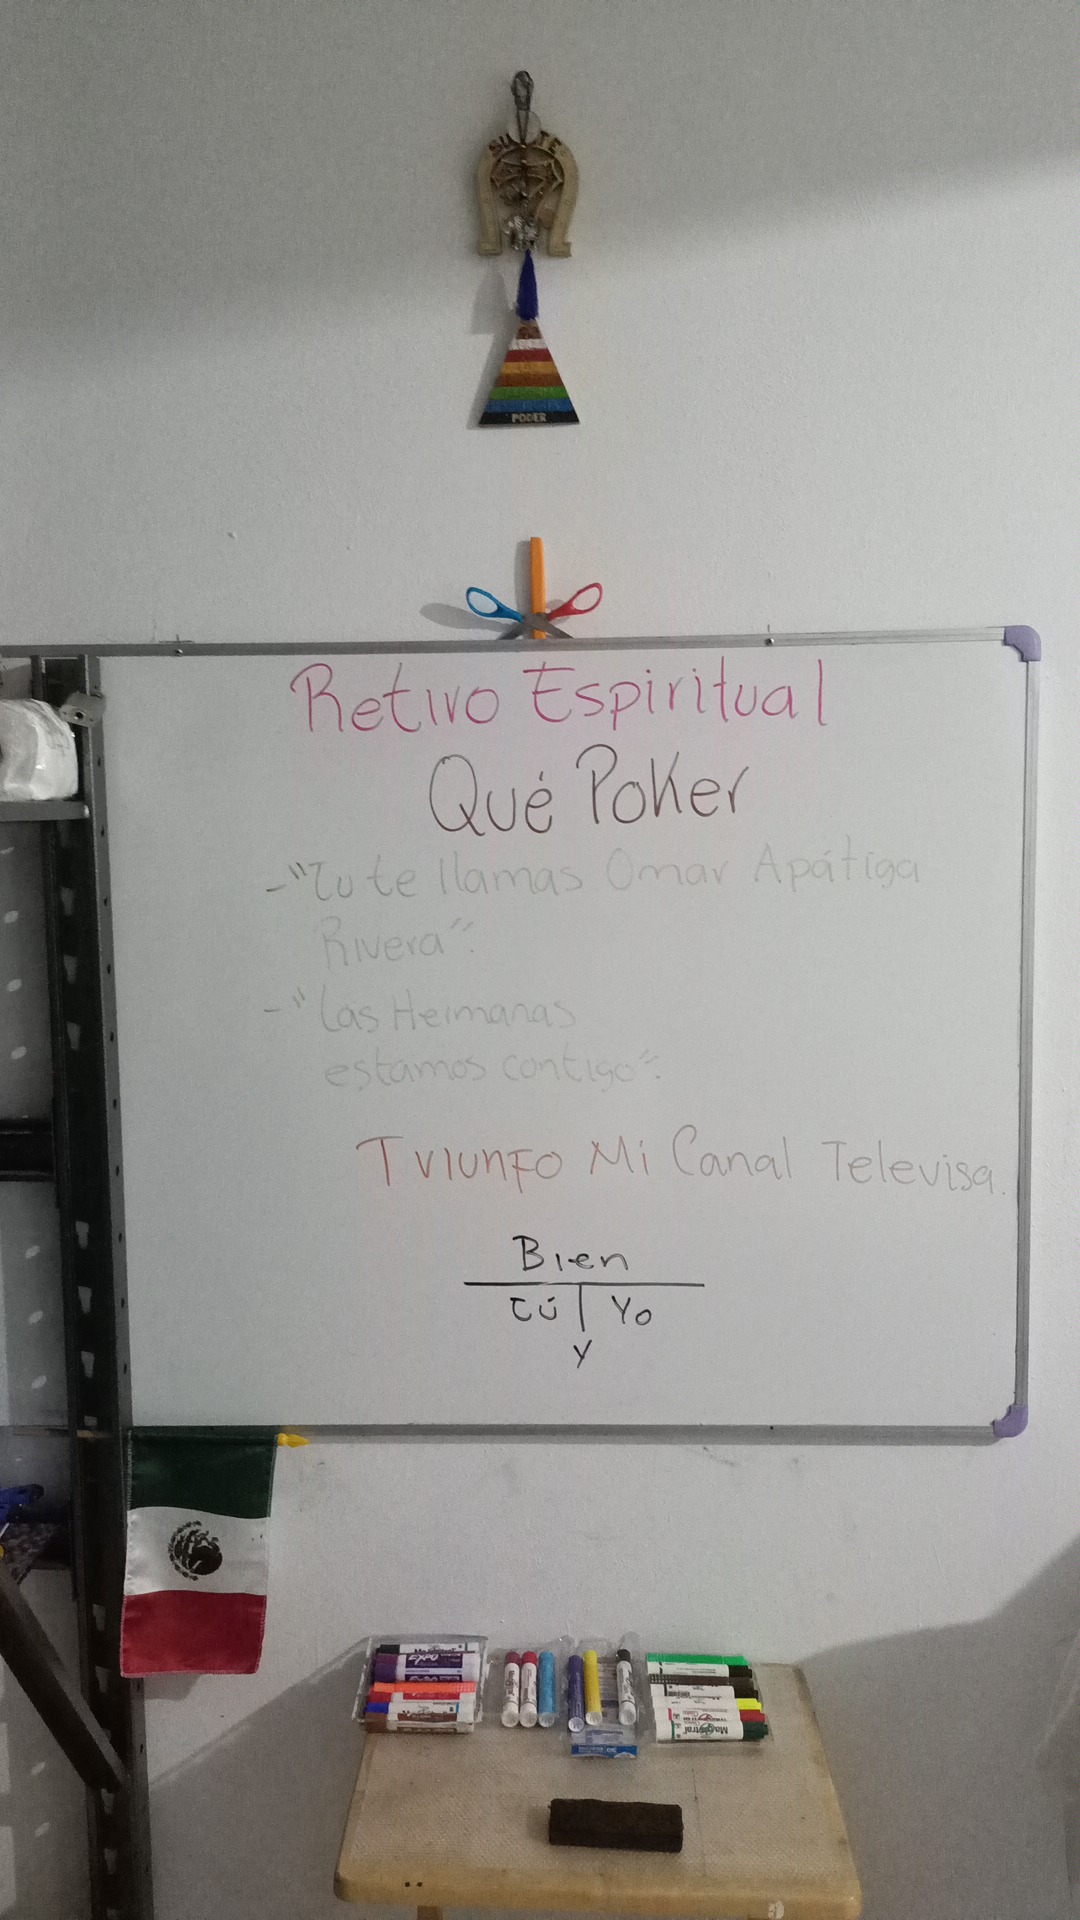 SUERTE
PODER
Retiro Espiritual
Qué Poker
-"Tu te llamas Omar Apátiga
Rivera".
-"Las Hermanas
estamos contigo".
Triunfo Mi Canal Televisa.
Bien
tú | Yo
y
EXPO
Magistral